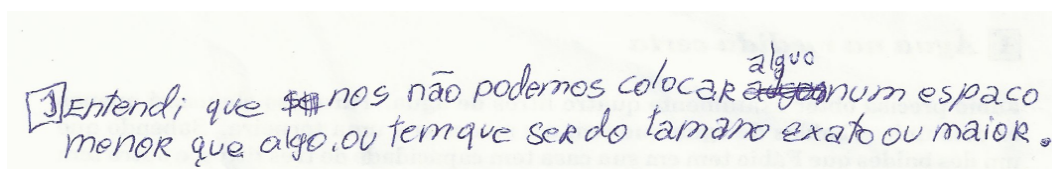 alguo
1 Entendi que nos não podemos colocar num espaco
menor que algo, ou tem que ser do tamano exato ou maior.